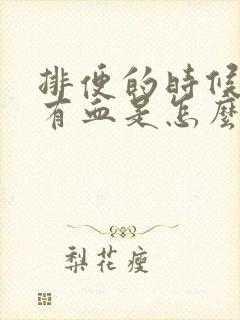 排便的時候
有血是怎麼
梨花瘦